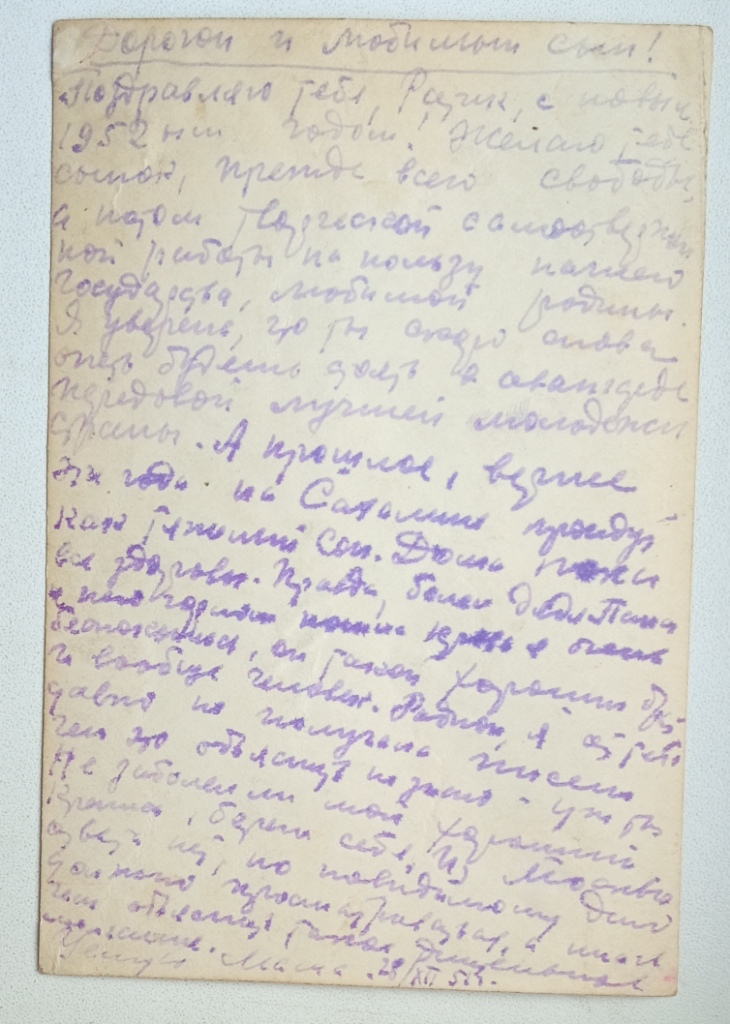 Дорогой и любимый сын!
Поздравляю тебя, Радик, с новым
1952 ым годом! Желаю тебе
сынок, прежде всего свободы,
а потом творческой самоотвержен
ной работы на пользу нашего
государства, любимой родины.
Я уверена, что ты скоро снова
опять будешь стоять в авангарде
передовой лучшей молодежи
страны. А прошлое,
эти года на Сахалине пройдут
как тяжелый сон. Дома пока
все здоровы. Правда, болен дядя Паша
и очень
беспокоимся, он такой хороший брат
и вообще человек. Родной, я от тебя
давно не получала писем
чем это объяснить не знаю - уж ты
Не заболел ли мой хороший
Крепись, береги себя. Из Москвы
ответа нет, по видимому дело
должно просматриваться, а иначе
чем объяснить такое длительное
молчание.
Целую Мама. 28/XII 51г.